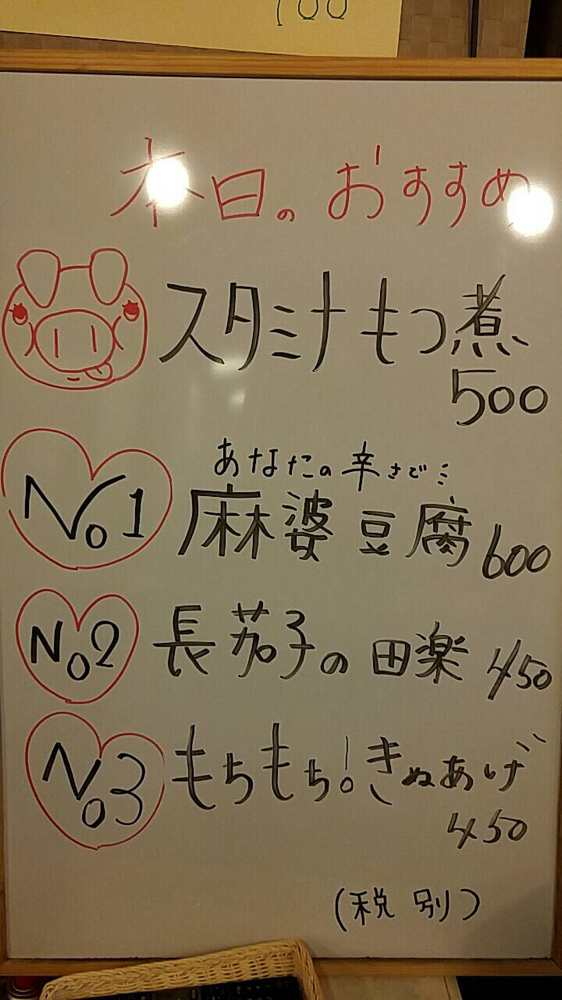 100
本日のおすすめ
スタミナもつ煮
500
あなたの辛さで…
No1 麻婆豆腐 600
No2 長茄子の田楽 450
No3 もちもち！きぬあげ
450
(税別)